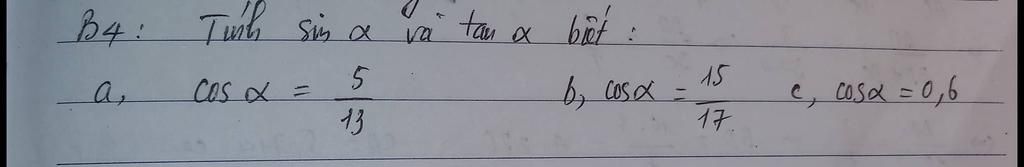 B4: Tính sin α và tan α biết:
a, cos α = 5/13 b, cosα = 15/17 c, cosα = 0,6